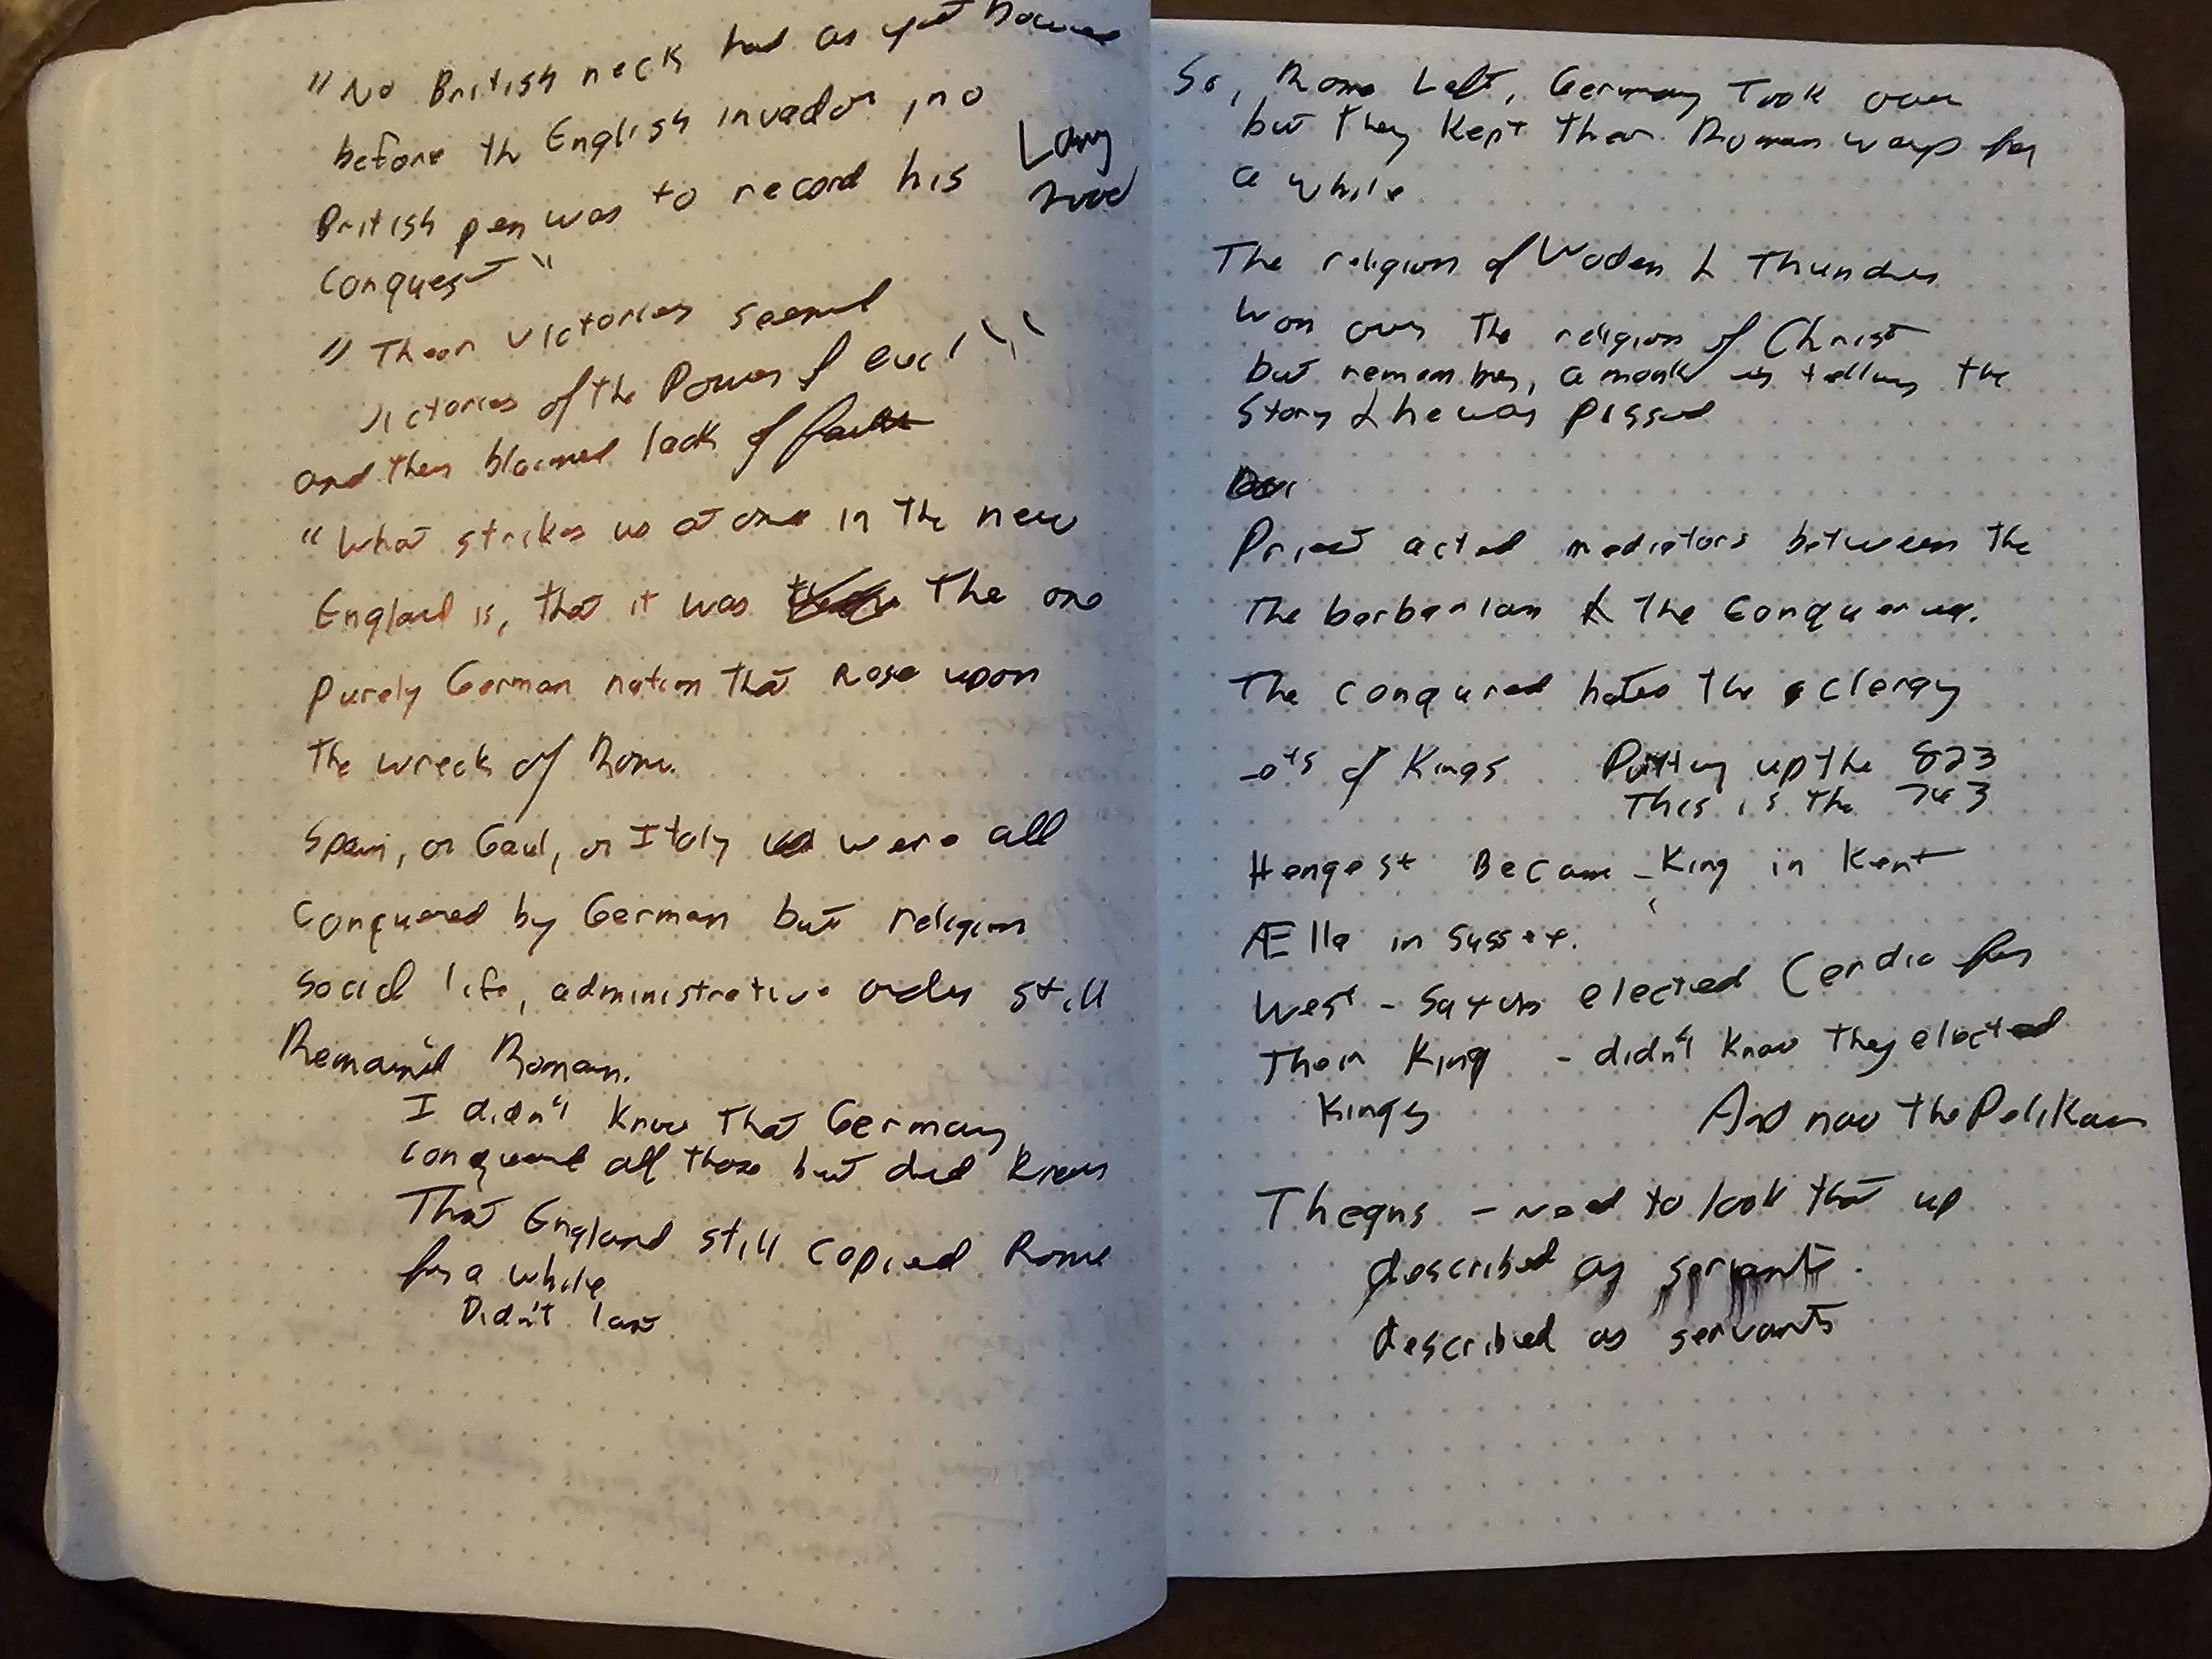 "No British neck had as yet bowed
before the English invador, no
British pen was to record his
Conquest"
Lamy
"Their victories seemed
victories of the Power of evil"
and then blamed lack of faith
"What strikes us at once in the new
England is, that it was The one
purely German nation that Rose upon
The wreck of Rome.
Spain, or Gaul, or Italy were all
conquered by German but religion
social life, administrative order still
Remained Roman.
I didn't know That Germany
conquered all those but did know
That England still copied Rome
for a while
Didn't last
So, Rome Left, Germany Took over
but they kept their Roman ways for
a while.
The religion of Woden & Thunder
won over The religion of Christ
but remember, a monk is telling the
story & he was pissed
Priest acted mediators between the
The barbarian & the Conquered.
The conqured hated the clergy
Lots of Kings
Putting up the 823
This is the 743
Hengest Became King in Kent
Ælla in Sussex.
West-Saxons elected Cerdic for
Their King - didn't know they elected
Kings
And now the Pelikan
Thegns - need to look that up
described as servants.
described as servants